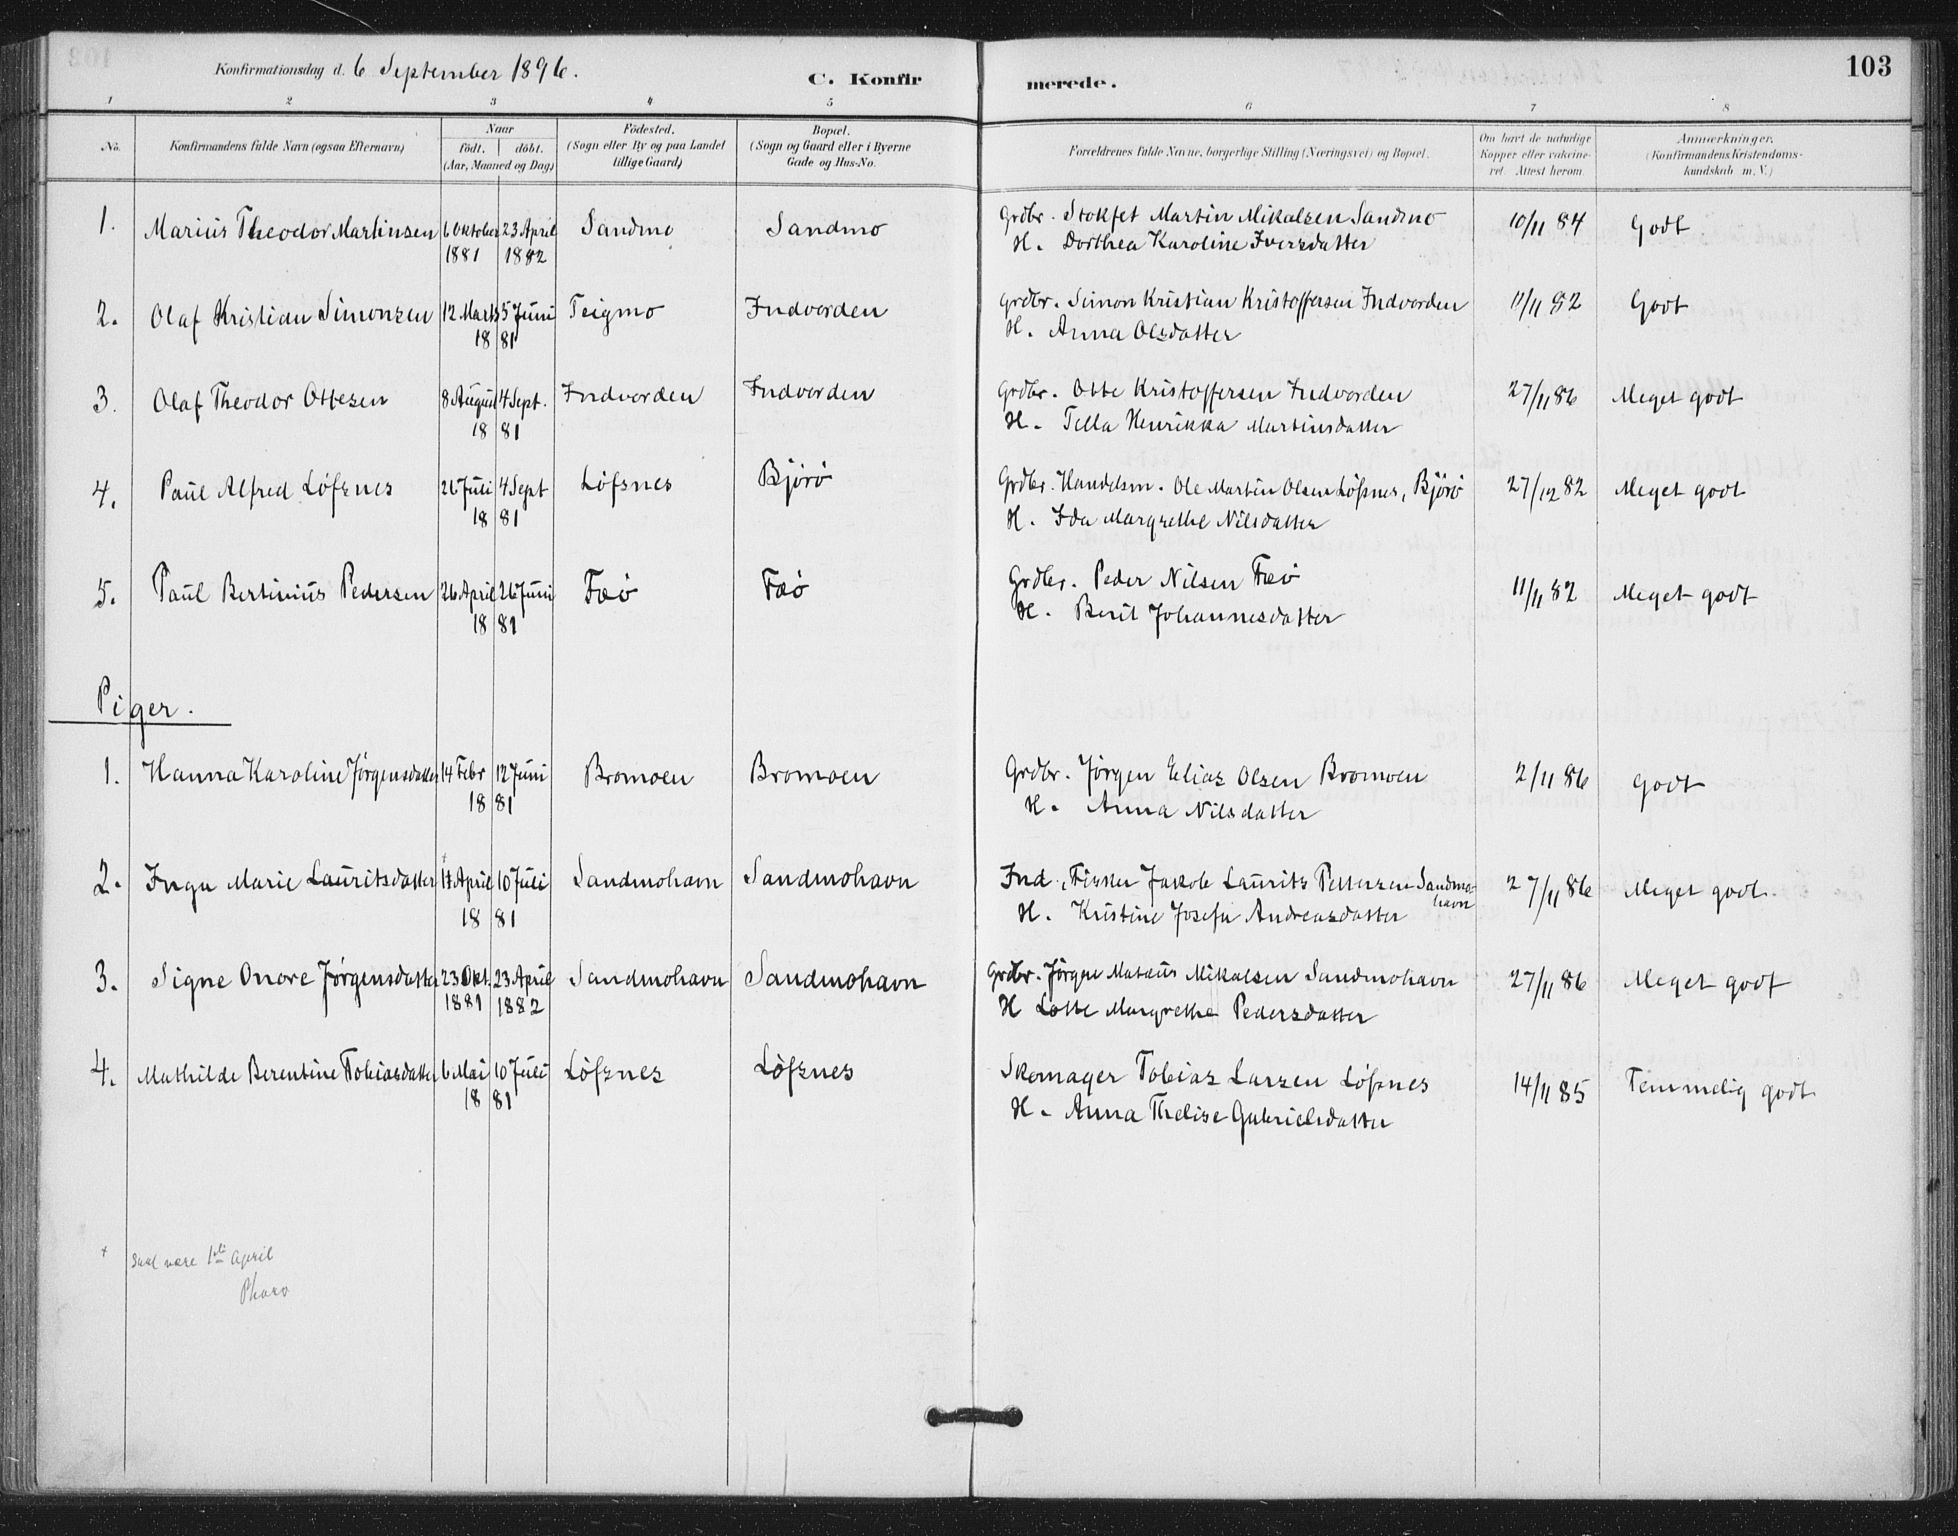 Konfirmationsdag d. 6 September 1896.
C. Konfirmerede.
103
1 2 3 4 5 6 7 8
No.
Konfirmandens fulde Navn (ogsaa Efternavn)
Naar
født. døbt.
(Aar, Maaned og Dag)
Fødested.
(Sogn eller By og paa Landet
tillige Gaard)
Bopæl.
(Sogn og Gaard eller i Byerne
Gade og Hus-No.
Forældrenes fulde Navne, borgerlige Stilling (Næringsvei) og Bopæl.
Om havt de naturlige
Kopper eller vakcine-
ret. Attest herom.
Anmærkninger.
(Konfirmandens Kristendoms-
kundskab m. V.)
1. Marius Theodor Martinsen 6 Oktober 23 April Sandmo Sandmo Grdbr. Stokfet Martin Mikalsen Sandmo 10/11 84 Godt
1881 1882 H. Dorthea Karoline Iversdatter
2. Olaf Kristian Simonsen 12 Marts 5 Juni Teigmo Indvorden Grdbr. Simon Kristian Kristoffersen Indvorden 11/11 82 Godt
18 81 H. Anna Olsdatter
3. Olaf Theodor Ottesen 8 August 4 Sept. Indvorden Indvorden Grdbr. Otte Kristoffersen Indvorden 27/11 86 Meget godt
18 81 H. Tella Henrikka Martinsdatter
4. Paul Alfred Løfsnes 26 Juli 4 Sept Løfsnes Bjørø Grdbr. Handelsm. Ole Martin Olsen Løfsnes, Bjørø 27/12 82 Meget godt
18 81 H. Ida Margrethe Nilsdatter
5. Paul Bertinius Pedersen 26 April 26 Juni Fæø Fæø Grdbr. Peder Nilsen Fæø 11/11 82 Meget godt
18 81 H. Berit Johannesdatter
Piger.
1. Hanna Karoline Jørgensdatter 14 Febr 12 Juni Bromoen Bromoen Grdbr. Jørgen Elias Olsen Bromoen 2/11 86 Godt
18 81 H. Anna Nilsdatter
2. Inga Marie Lauritsdatter + 17 April 10 Juli Sandmohavn Sandmohavn Ind., Fisker Jakob Laurits Pettersen Sandmo- 27/11 86 Meget godt.
havn
18 81 H. Kristine Josefa Andreasdatter
3. Signe Onore Jørgensdatter 23 Okt. 23 April Sandmohavn Sandmohavn Grdbr. Jørgen Matæus Mikalsen Sandmohavn 27/11 86 Meget godt
1881 1882 H Lotte Margrethe Pedersdatter
4. Mathilde Berentine Tobiasdatter 6 Mai 10 Juli Løfsnes Løfsnes Skomager Tobias Larsen Løfsnes 14/11 85 Temmelig godt
18 81 H. Anna Thelise Gabrielsdatter
+ Skal være 1ste April